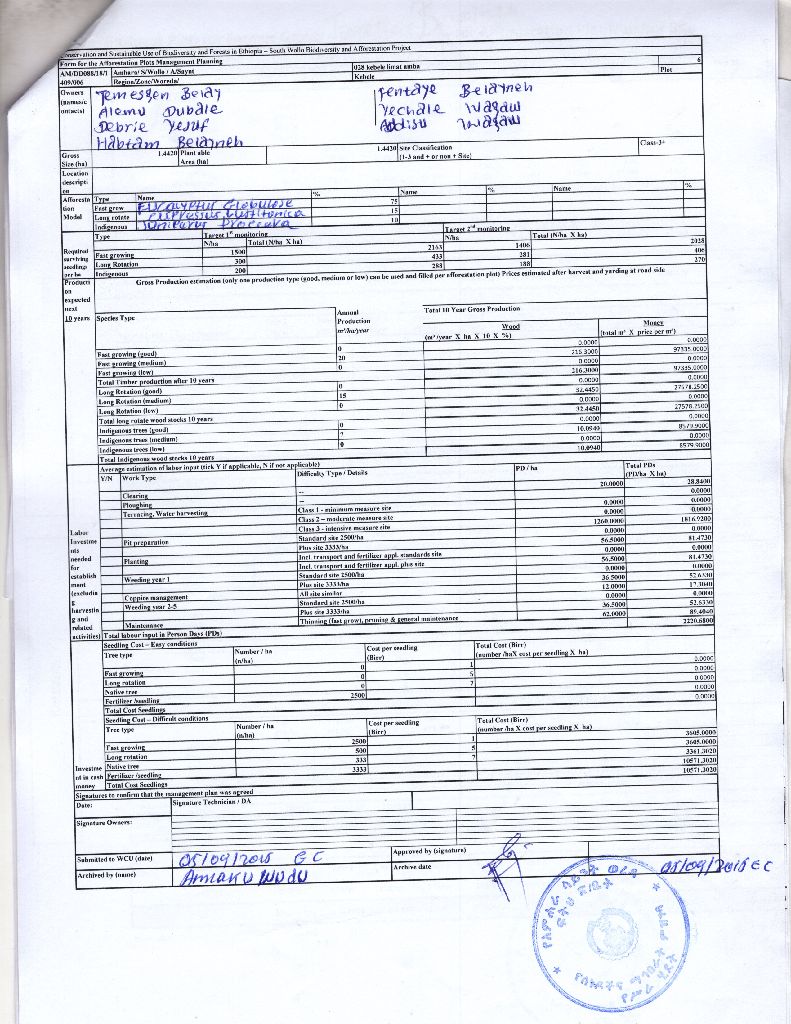 Conservation and Sustainable Use of Biodiversity and Forests in Ethiopia – South Wollo Biodiversity and Afforestation Project
Form for the Afforestation Plots Management Planning
AM/DD088/18/1409/006 Amhara/ S/Wollo / A/Saynt 028 kebele limat amba 6
Region/Zone/Woreda/ Kebele Plot
Owners (names contacts)
Temesgen Belay Fentaye Belayneh
Alemu Dubale Yechale Wagaw
Debrie Yesuf Addisu Wagaw
Habtam Belayneh
Gross Size (ha) 1.4420 Plant able Area (ha) 1.4420 Site Classification (1-3 and + or non + Site) Class-3+
Location description
Afforestation Model Type Name % Name % Name %
Fast grow Eucalyptus Globulose 75
Long rotate Cuppressus lusitonica 15
Indigenous Juniperus Proceava 10
Required surviving seedlings per ha Type Target 1st monitoring Target 2nd monitoring
N/ha Total (N/ha X ha) N/ha Total (N/ha X ha)
Fast growing 1500 2163 1406 2028
Long Rotation 300 433 281 406
Indigenous 200 288 188 270
Production expected next 10 years
Gross Production estimation (only one production type (good, medium or low) can be used and filled per afforestation plot) Prices estimated after harvest and yarding at road side
Species Type Annual Production m³/ha/year Total 10 Year Gross Production
Wood (m³/year X ha X 10 X %) Money (total m³ X price per m³)
Fast growing (good) 0 0.0000 0.0000
Fast growing (medium) 20 216.3000 97335.0000
Fast growing (low) 0 0.0000 0.0000
Total Timber production after 10 years 216.3000 97335.0000
Long Rotation (good) 0 0.0000 0.0000
Long Rotation (medium) 15 32.4450 27578.2500
Long Rotation (low) 0 0.0000 0.0000
Total long rotate wood stocks 10 years 32.4450 27578.2500
Indigenous trees (good) 0 0.0000 0.0000
Indigenous trees (medium) 7 10.0940 8579.9000
Indigenous trees (low) 0 0.0000 0.0000
Total Indigenous wood stocks 10 years 10.0940 8579.9000
Labor Investments needed for establishment (excluding harvesting and related activities)
Average estimation of labor input (tick Y if applicable, N if not applicable)
Y/N Work Type Difficulty Type / Details PD / ha Total PDs (PD/ha X ha)
Clearing -- 20.0000 28.8400
Ploughing -- 0.0000
Terracing, Water harvesting Class 1 - minimum measure site 0.0000 0.0000
Class 2 – moderate measure site 0.0000 0.0000
Class 3 - intensive measure site 1260.0000 1816.9200
Pit preparation Standard site 2500/ha 0.0000 0.0000
Plus site 3333/ha 56.5000 81.4730
Planting Incl. transport and fertilizer appl. standards site 0.0000 0.0000
Incl. transport and fertilizer appl. plus site 56.5000 81.4730
Weeding year 1 Standard site 2500/ha 0.0000 0.0000
Plus site 3333/ha 36.5000 52.6330
Coppice management All site similar 12.0000 17.3040
Weeding year 2-5 Standard site 2500/ha 0.0000 0.0000
Plus site 3333/ha 36.5000 52.6330
Maintenance Thinning (fast grow), pruning & general maintenance 62.0000 89.4040
Total labour input in Person Days (PDs) 2220.6800
Seedling Cost – Easy conditions
Tree type Number / ha (n/ha) Cost per seedling (Birr) Total Cost (Birr) (number /haX cost per seedling X ha)
Fast growing 0 1 0.0000
Long rotation 0 5 0.0000
Native tree 0 7 0.0000
Fertilizer /seedling 2500 0.0000
Total Cost Seedlings 0.0000
Seedling Cost – Difficult conditions
Tree type Number / ha (n/ha) Cost per seedling (Birr) Total Cost (Birr) (number /ha X cost per seedling X ha)
Fast growing 2500 1 3605.0000
Long rotation 500 5 3605.0000
Native tree 333 7 3361.3020
Fertilizer /seedling 3333 10571.3020
Total Cost Seedlings 10571.3020
Investment in cash money
Signatures to confirm that the management plan was agreed
Date: Signature Technician / DA
Signature Owners:
Submitted to WCU (date) 05/09/2015 GC Approved by (signature)
Archived by (name) Amlaku Wudu Archive date 05/09/2015 GC